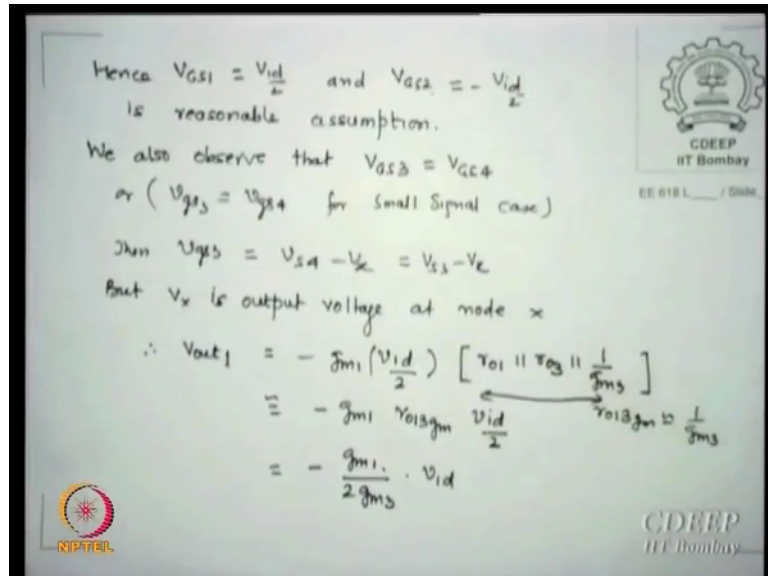 Hence VGS1 = Vid/2 and VGS2 = - Vid/2
is reasonable assumption.
We also observe that VGS3 = VGS4
or ( Vgs3 = Vgs4 for small signal case )
Then Vgs3 = VS4 - Vx = VS3 - Vx
But Vx is output voltage at node x
∴ Vout1 = - gm1 (Vid/2) [ ro1 || ro3 || 1/gm3 ]
≡ - gm1 ro13gm Vid/2 ro13gm ≅ 1/gm3
= - gm1/2gm3 . Vid
CDEEP
IIT Bombay
EE 618 L___ / Slide
NPTEL
CDEEP
IIT Bombay